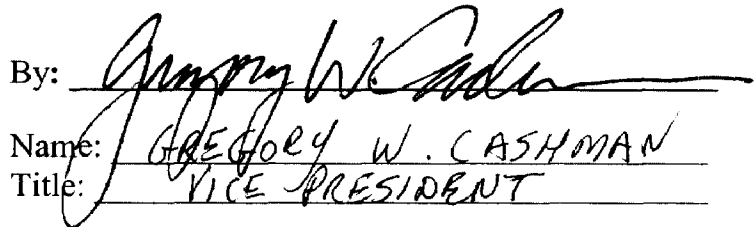 By: Gregory W. Cashman
Name: GREGORY W. CASHMAN
Title: VICE PRESIDENT